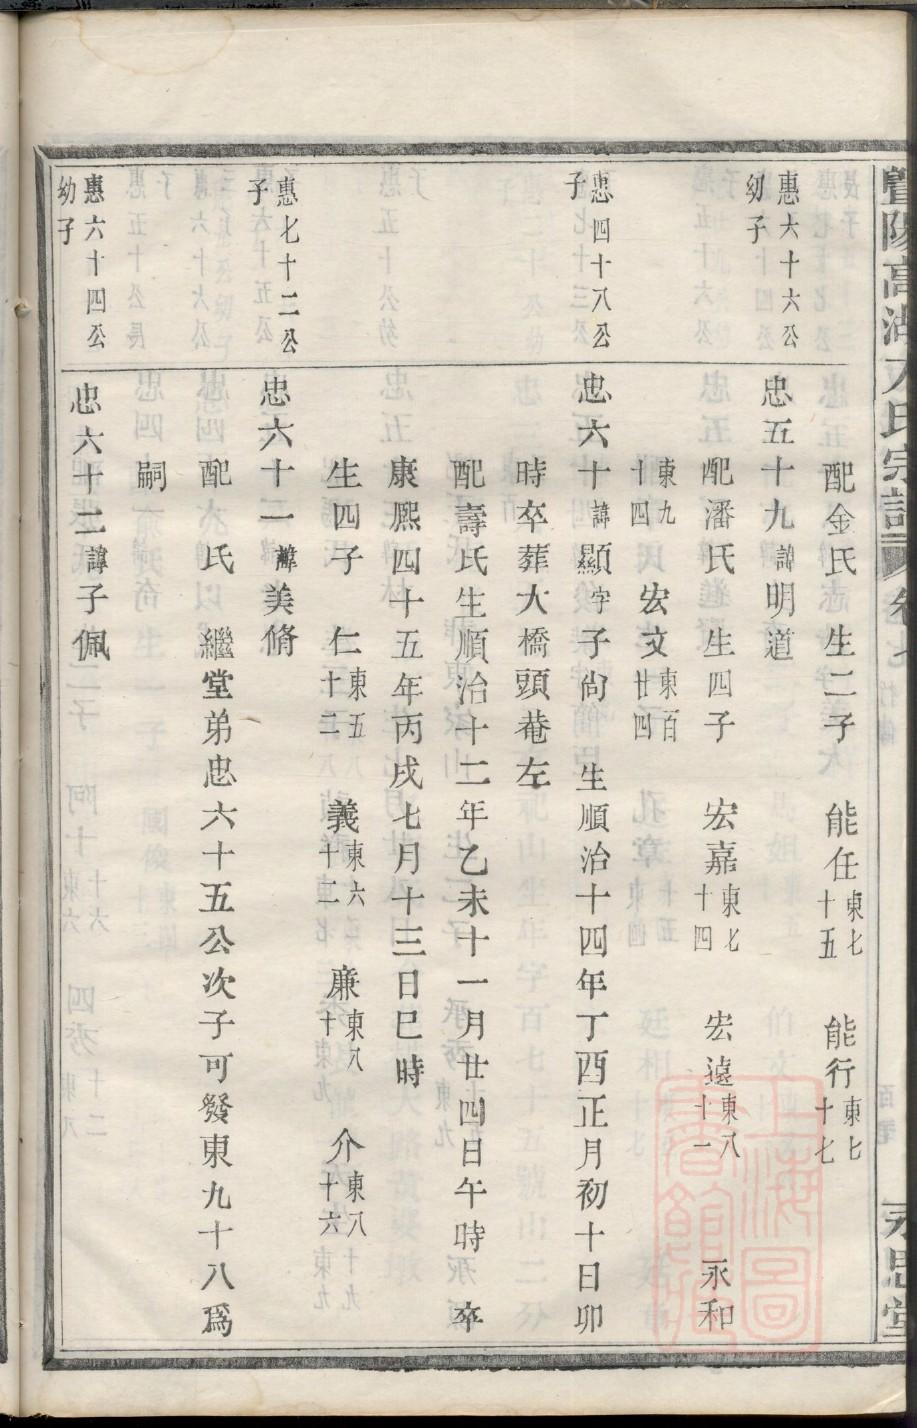 暨陽高湖方氏宗譜 卷七 永思堂
配金氏 生二子 能任東七十五 能行東七十七
惠六十六公幼子
忠五十九諱明道
配潘氏 生四子 宏嘉東七十四 宏遠東八十一 永和
東九十四 宏文東百廿四
惠四十八公子
忠六十諱顯字子尙 生順治十四年丁酉正月初十日卯
時卒葬大橋頭菴左
配壽氏生順治十二年乙未十一月廿四日午時 卒
康熙四十五年丙戌七月十三日巳時
生四子 仁東五十二 義東六十二 廉東八十 介東八十六
惠七十二公子
忠六十一諱美脩
配 氏 繼堂弟忠六十五公次子可發東九十八爲
嗣
惠六十四公幼子
忠六十二諱子佩